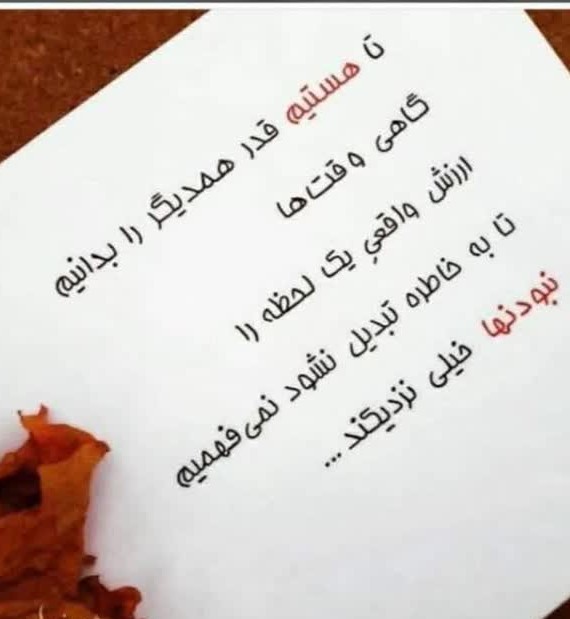 تا هستیم قدر همدیگر را بدانیم
گاهی وقت‌ها
ارزش واقعیِ یک لحظه را
تا به خاطره تبدیل نشود نمی‌فهمیم
نبودنها خیلی نزدیکند ...